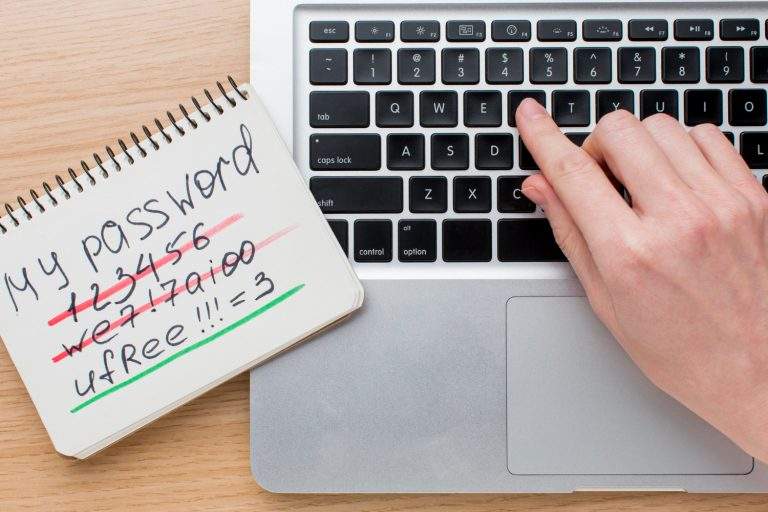 My password
123456
we7!7aioo
ufRee!!!=3
esc F1 F2 F3 F4 F5 F6 F7 F8 F9
~ ! @ # $ % ^ & * (
` 1 2 3 4 5 6 7 8 9
tab Q W E T Y U I O
caps lock A S D L
shift Z X C
control alt option